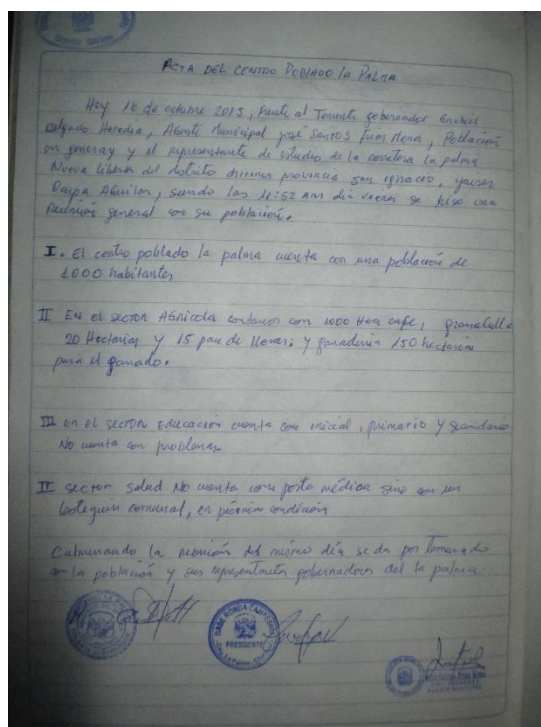 ACTA DEL CENTRO POBLADO LA PALMA
Hoy 16 de octubre 2015, frente al Teniente gobernador
Delgado Heredia, Agente Municipal José Santos Mena, Población
en general y el representante de estudio de la carretera La palma
Nueva Libera del distrito chirinos provincia san ignacio,
Aguilar, siendo las 11:52 AM dia se hiso una
Reunion general con su población.
I. El centro poblado la palma cuenta con una población de
1000 habitantes
II EN el sector Agricola contamos con 1000 Hea cafe, granadilla
20 Hectarias y 15 para de y ganaderia 150 hectarias
para el ganado.
III en el sector Educación cuenta con inicial, primario y secundario
No cuenta con problemas
II sector salud No cuenta con posta médica sino con un
botequin comunal, en pésimas condición
Culminando la reunión del mismo dia se da por
con la población y sus representantes gobernadora del la palma.
BASE RONDA CAMPESINA
PRESIDENTE